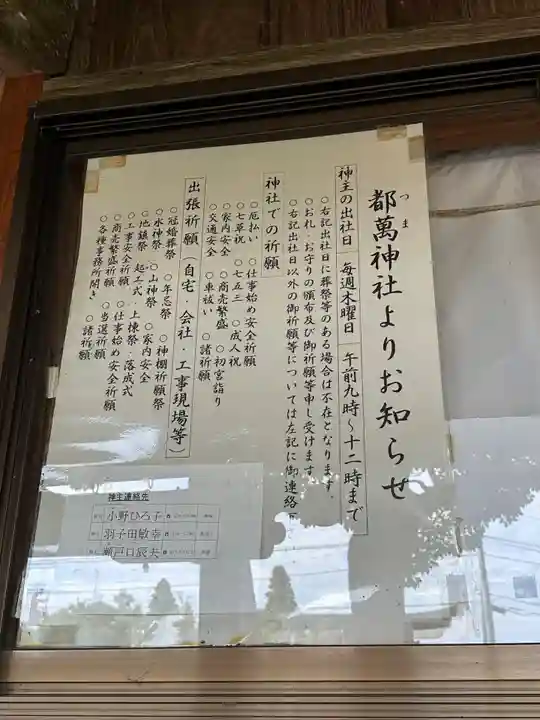 都萬神社よりお知らせ
つま
神主の出社日 毎週木曜日 午前九時~十二時まで
○右記出社日に葬祭等のある場合は不在となります。
○お札・お守りの頒布及び御祈願等申し受けます
○右記出社日以外の御祈願等については左記に御連絡
神社での祈願
○厄払い ○仕事始め安全祈願
○七草祝 ○七五三 ○成人祝
○家内安全 ○商売繁盛 ○初宮詣り
○交通安全 ○車祓い ○諸祈願
出張祈願(自宅・会社・工事現場等)
○冠婚葬祭 ○年忌祭 ○神棚祈願祭
○水神祭 ○山神祭 ○家内安全
○地鎮祭・起工式・上棟祭・落成式
○工事安全祈願 ○仕事始め安全祈願
○商売繁盛祈願 ○当選祈願
○各種事務所開き ○諸祈願
神主連絡先
小野ひろ子
羽子田敏幸
瀬戸口辰夫